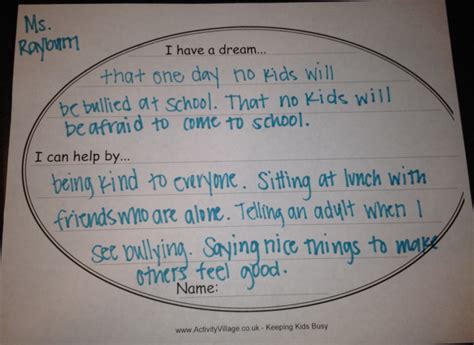 Ms.
Rayburn
I have a dream...
that one day no kids will
be bullied at school. That no kids will
be afraid to come to school.
I can help by...
being kind to everyone. Sitting at lunch with
friends who are alone. Telling an adult when I
see bullying. Saying nice things to make
others feel good.
Name:
www.ActivityVillage.co.uk - Keeping Kids Busy